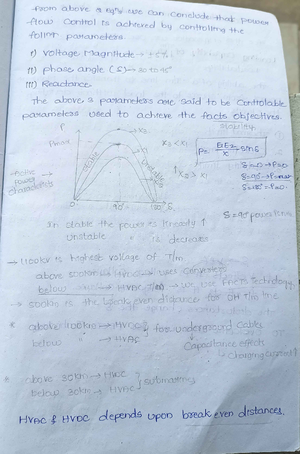 from above 2 eqns we can conclude that power
flow control is achieved by controlling the
follint parameters.
i) voltage Magnitude → ±5%
ii) phase angle (δ) → 30 to 45°
iii) Reactance
The above 3 parameters are said to be controllable
parameters used to achieve the facts objectives.
P
Stability
Pmax
x2
x1
x2 < x1
x2 > x1
P = E1E2/x sinδ
δ=0 → P=0
δ=90° → P=max
δ=180° → P=0
power
90°
180°
δ
δ=90°
In stable the power is linearly ↑
Unstable " is decreases
→ 400kv is highest voltage of T/m
above 500km → HVDC → uses converters
below
→ we use facts technology
→ 500km is the break even distance for OH T/m line
* above 400km → HVDC } for underground cables
below " → HVAC
↳ Capacitance effects
↳ Charging current ↑
* above 30km → HVDC } submarines
below 30km → HVAC
HVAC & HVDC depends upon break even distances.